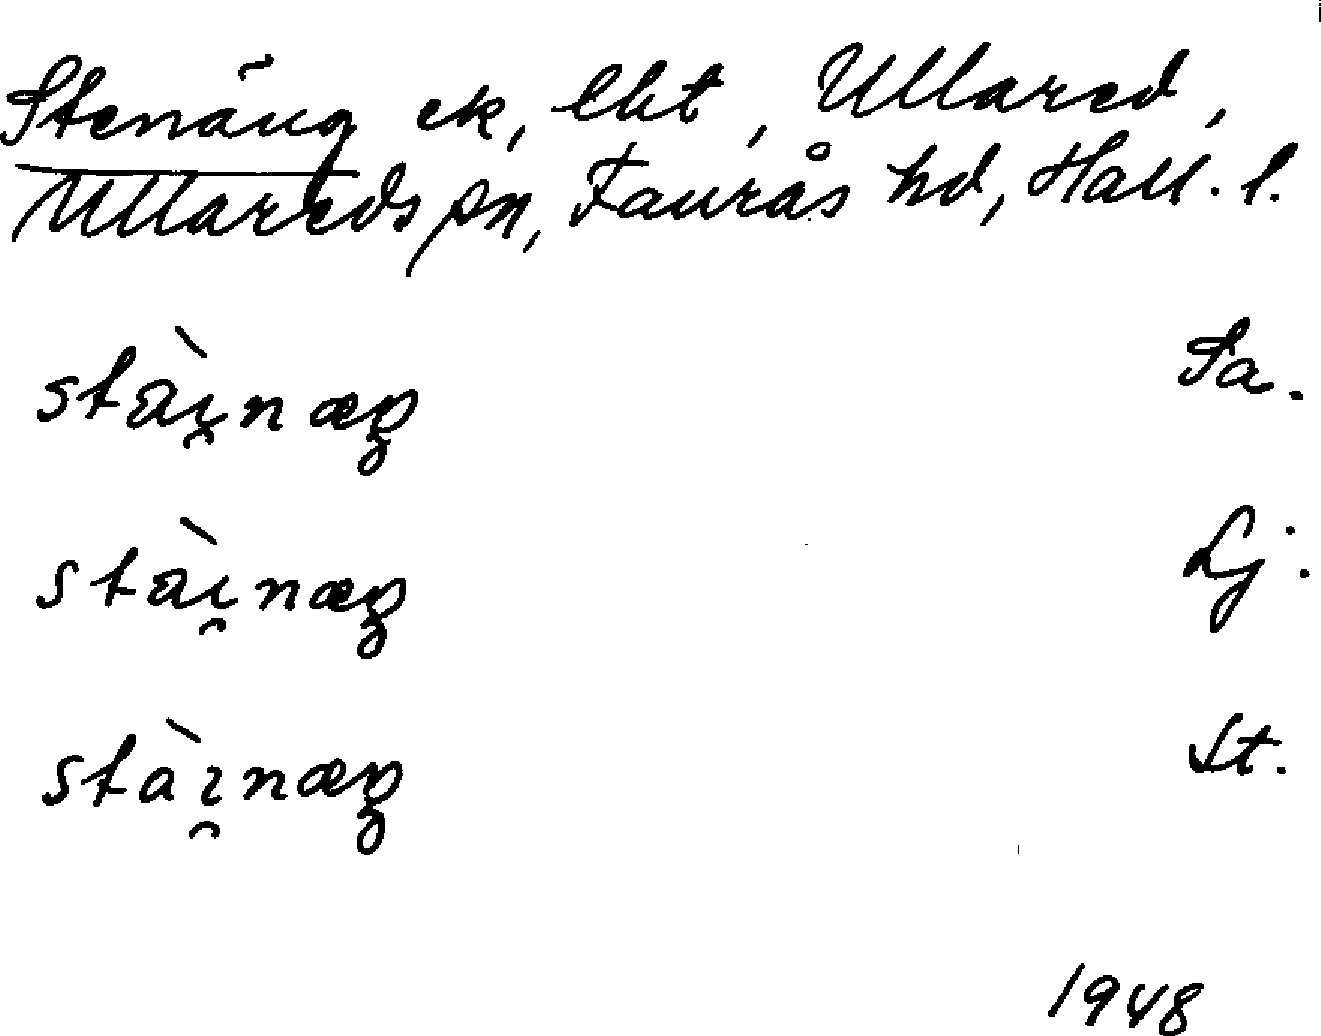 Stenäng ek, lht, Ullared,
Ullareds sn, Faurås hd, Hall. l.
stài̯næŋ Sa.
stài̯næŋ Lj.
stài̯næŋ St.
1948